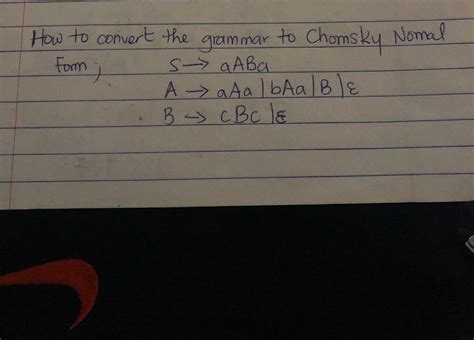 How to convert the grammar to Chomsky Nomal
Form; S → aABa
A → aAa | bAa | B | ε
B → cBc | ε